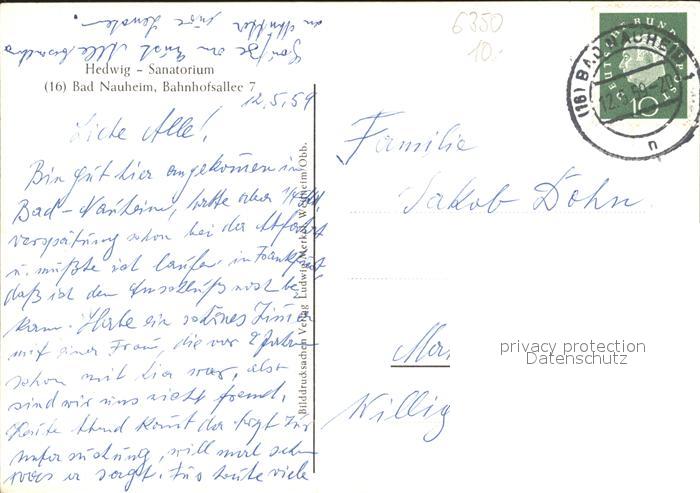 Hedwig - Sanatorium
(16) Bad Nauheim, Bahnhofsallee 7
12.5.59
Liebe Alle!
Bin gut hier angekommen in
Bad-Nauheim, hatte aber 1/4 Std.
verspätung schon bei der Abfahrt
u. mußte ich laufen in Frankfurt
daß ich den Anschluß noch be-
kam. Habe ein schönes Zimmer
mit einer Frau, die vor 2 Jahren
schon mit hier war, also
sind wir uns nicht fremd.
Heute Abend kommt der Arzt zur
untersuchung, will mal sehen
was er sagt. Für heute viele
Grüße an Euch Alle, besonders
an Mutter
6350
10.-
Bilddrucksachen Verlag Ludwig Merkel, Weilheim/Obb.
DEUTSCHE BUNDESPOST
10
(16) BAD NAUHEIM 1
12.5.59-20
n
Familie
Jakob Dohn.
Willig
privacy protection
Datenschutz